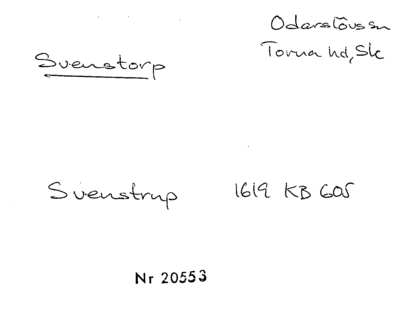 Svenstorp
Odarslövs sn
Torna hd, Sk
Svenstrup 1619 KB 605
Nr 20553